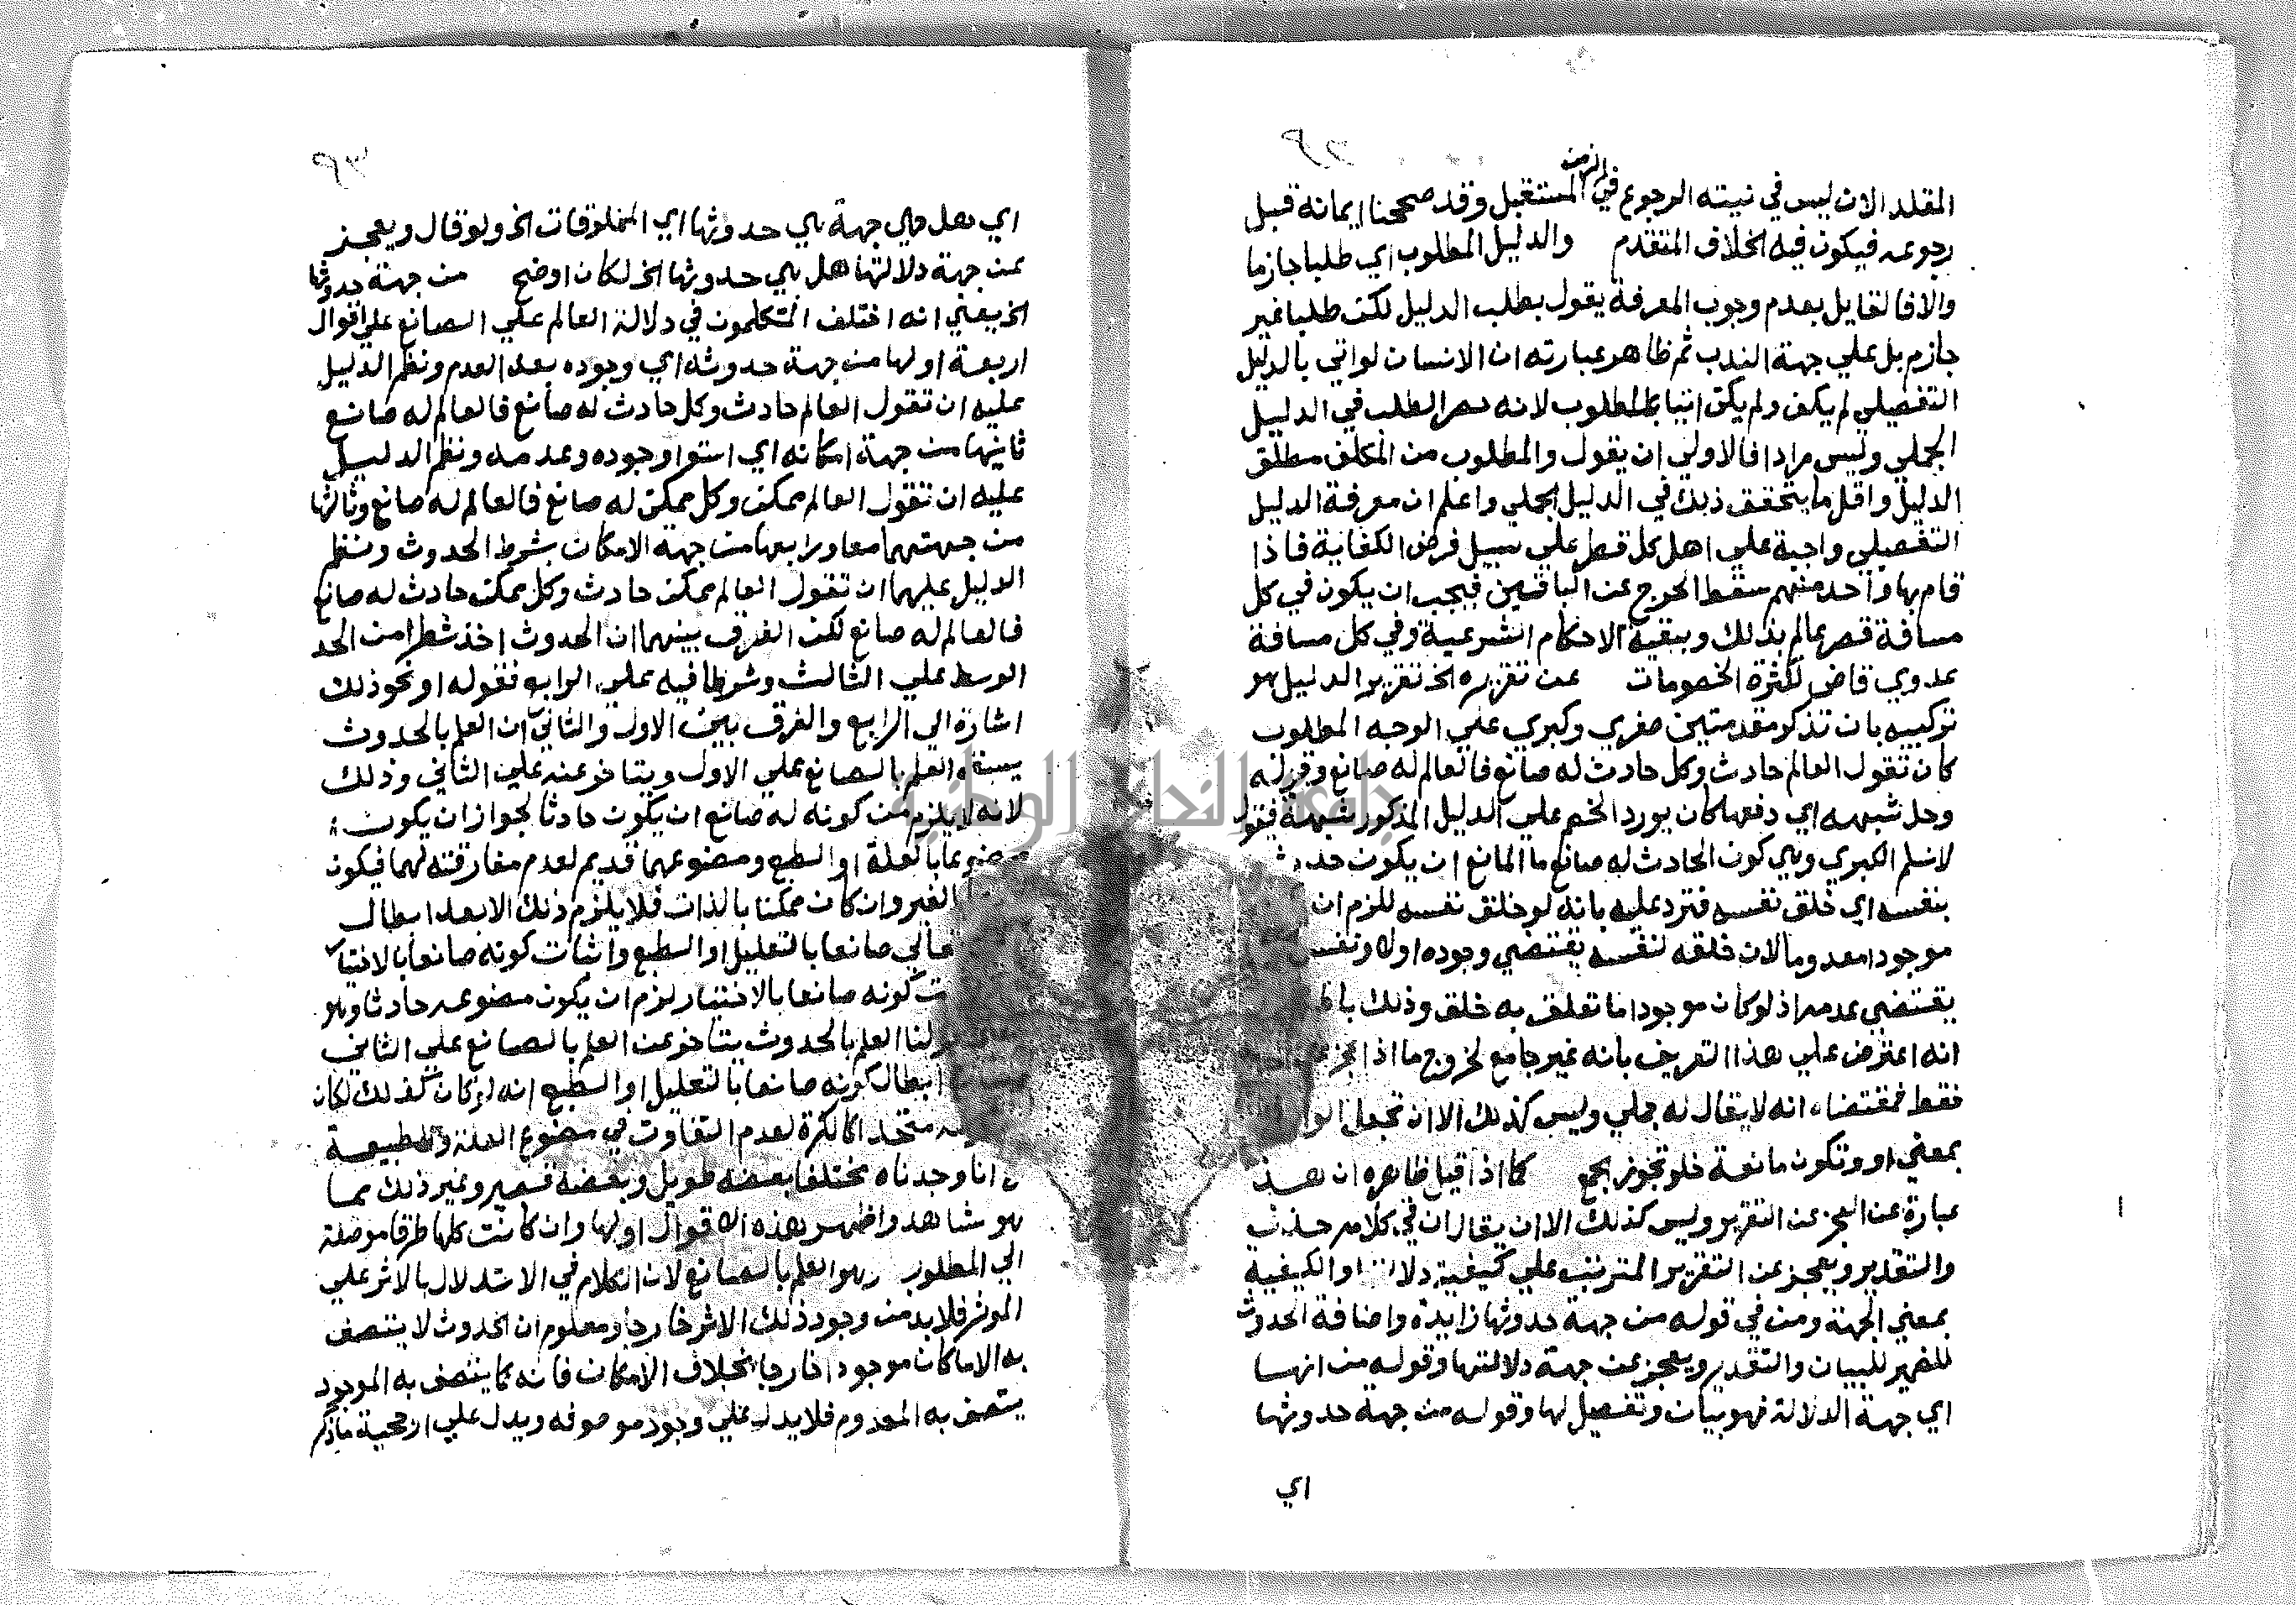 المقلد الان ليس في نيته الرجوع في الزمن المستقبل وقد صححنا ايمانه قبل
رجوعه فيكون فيه الخلاف المتقدم والدليل المطلوب اي طلبا جازما
والا فالقايل بعدم وجوب المعرفة يقول بطلب الدليل لكن طلبا غير
جازم بل علي جهة الندب ثم ظاهر عبارته ان الانسان لو اتي بالدليل
التفصيلي لم يكف ولم يكن اتيا بالمطلوب لانه حصر الطلب في الدليل
الجملي وليس مرادا فالاولي ان يقول والمطلوب من المكلف مطلق
الدليل واقل ما يتحقق ذلك في الدليل الجملي واعلم ان معرفة الدليل
التفصيلي واجبة علي اهل كل قطر علي سبيل فرض الكفاية فاذا
قام بها واحد منهم سقط الحرج عن الباقين فيجب ان يكون في كل
مسافة قصر عالم بذلك وببقية الاحكام الشرعية وفي كل مسافة
عدوي قاض لكثرة الخصومات عن تقريره الخ تقرير الدليل هو
تركيبه بان تذكر مقدمتين صغري وكبري علي الوجه المطلوب
كان تقول العالم حادث وكل حادث له صانع فالعالم له صانع وقوله
وحل شبهه اي دفعها كان يورد الخصم علي الدليل المذكور شبهة فيقول
لا نسلم الكبري وهي كون الحادث له صانع ما المانع ان يكون حدث
بنفسه اي خلق نفسه فترد عليه بانه لو خلق نفسه للزم ان
موجودا معدوما لان خلقه لنفسه يقتضي وجوده اولا ونفس
يقتضي عدمه اذ لو كان موجودا ما تعلق به خلق وذلك باطل
انه اعترض علي هذا التعريف بانه غير جامع لخروج ما اذا عجز عن
فقط فمقتضاه انه لا يقال له جملي وليس كذلك الا ان تجعل الواو
بمعني او وتكون مانعة خلو تجوز الجمع كما اذا قيل ظاهره ان هذ
عبارة عن العجز عن التقرير وليس كذلك الا ان يقال ان في كلامه حذف
والتقدير ويعجز عن التقرير المترتب علي كيفية دلا او الكيفية
بمعني الجهة ومن في قوله من جهة حدوثها زايدة واضافة الحدوث
للضمير للبيان والتقدير ويعجز عن جهة دلالتها وقوله من انها
اي جهة الدلالة فهو بيان وتفصيل لها وقوله من جهة حدوثها
اي
اي هل هي جهة هي حدوثها اي المخلوقات الخ ولو قال ويعجز
عن جهة دلالتها هل هي حدوثها الخ لكان اوضح من جهة حدوثها
الخ يعني انه اختلف المتكلمون في دلالة العالم علي الصانع علي اقوال
اربعة اولها من جهة حدوثه اي وجوده بعد العدم ونظم الدليل
عليه ان تقول العالم حادث وكل حادث له صانع فالعالم له صانع
ثانيها من جهة امكانه اي استوا وجوده وعدمه ونظم الدليل
عليه ان تقول العالم ممكن وكل ممكن له صانع فالعالم له صانع وثالثها
من جهتهما معا ورابعها من جهة الامكان بشرط الحدوث ونظم
الدليل عليهما ان تقول العالم ممكن حادث وكل ممكن حادث له صانع
فالعالم له صانع لكن الفرق بينهما ان الحدوث اخذ شطرا من الحد
الوسط علي الثالث وشرطا فيه علي الرابع فقوله او نحو ذلك
اشارة الي الرابع والفرق بين الاول والثاني ان العلم بالحدوث
يستلزم العلم بالصانع علي الاول ويتاخر عنه علي الثاني وذلك
لانه لا يلزم من كونه له صانع ان يكون حادثا لجواز ان يكون
مصنوعا بالعلة او الطبع ومصنوعهما قديم لعدم مفارقته لهما فيكون
الغير وان كان ممكنا بالذات فلا يلزم ذلك الا بعد ابطال
تعالي صانعا بالتعليل او الطبع واثبات كونه صانعا بالاختيا
ت كونه صانعا بالاختيار لزم ان يكون مصنوعه حادثا وهو
قولنا العلم بالحدوث يتاخر عن العلم بالصانع علي الثاني
ابطال كونه صانعا بالتعليل او الطبع انه لو كان كذلك لكان
متحدا كالكرة لعدم التفاوت في مصنوع العلة والطبيعة
انا وجدناه مختلفا بعضه طويل وبعضه قصير وغير ذلك مما
هو مشاهد واظهر هذه الاقوال اولها وان كانت كلها طرقا موصلة
الي المطلوب وهو العلم بالصانع لان الكلام في الاستدلال بالاثر علي
الموثر فلا بد من وجود ذلك الاثر خارجا ومعلوم ان الحدوث لا يتصف
به الا ما كان موجودا خارجا بخلاف الامكان فانه كما يتصف به الموجود
يتصف به المعدوم فلا يدل علي وجود موصوفه ويدل علي ارجحية ما ذكر